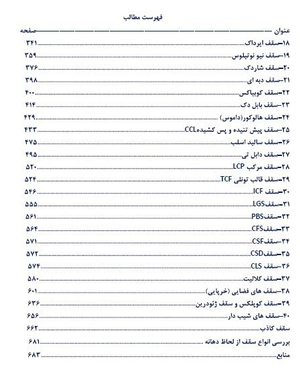 فهرست مطالب
عنوان صفحه
۱۸-سقف ایرداک ۳۴۱
۱۹-سقف نیو نوتیلوس ۳۵۹
۲۰-سقف شاردک ۳۷۶
۲۱-سقف دبه ای ۳۹۸
۲۲-سقف کوبیاکس ۴۰۰
۲۳-سقف بابل دک ۴۱۴
۲۴-سقف هالوکور(داموس) ۴۲۹
۲۵-سقف پیش تنیده و پس کشیدهCCL ۴۳۳
۲۶-سقف سالید اسلب ۴۷۵
۲۷-سقف دابل تی ۴۹۵
۲۸-سقف مرکب LCP ۵۲۰
۲۹-سقف قالب تونلی TCF ۵۲۴
۳۰-سقف ICF ۵۴۶
۳۱-سقفLGS ۵۵۵
۳۲-سقفPBS ۵۶۱
۳۳-سقفCFS ۵۶۴
۳۴-سقفCSF ۵۷۱
۳۵-سقفCSD ۵۷۲
۳۶-سقف CLS ۵۷۴
۳۷-سقف کلالیت ۵۸۰
۳۸-سقف های فضایی (خرپایی) ۶۰۱
۳۹-سقف کوپلکس و سقف ژئودزین ۶۳۶
۴۰-سقف های شیب دار ۶۵۶
سقف کاذب ۶۶۲
بررسی انواع سقف از لحاظ دهانه ۶۸۱
منابع ۶۸۳